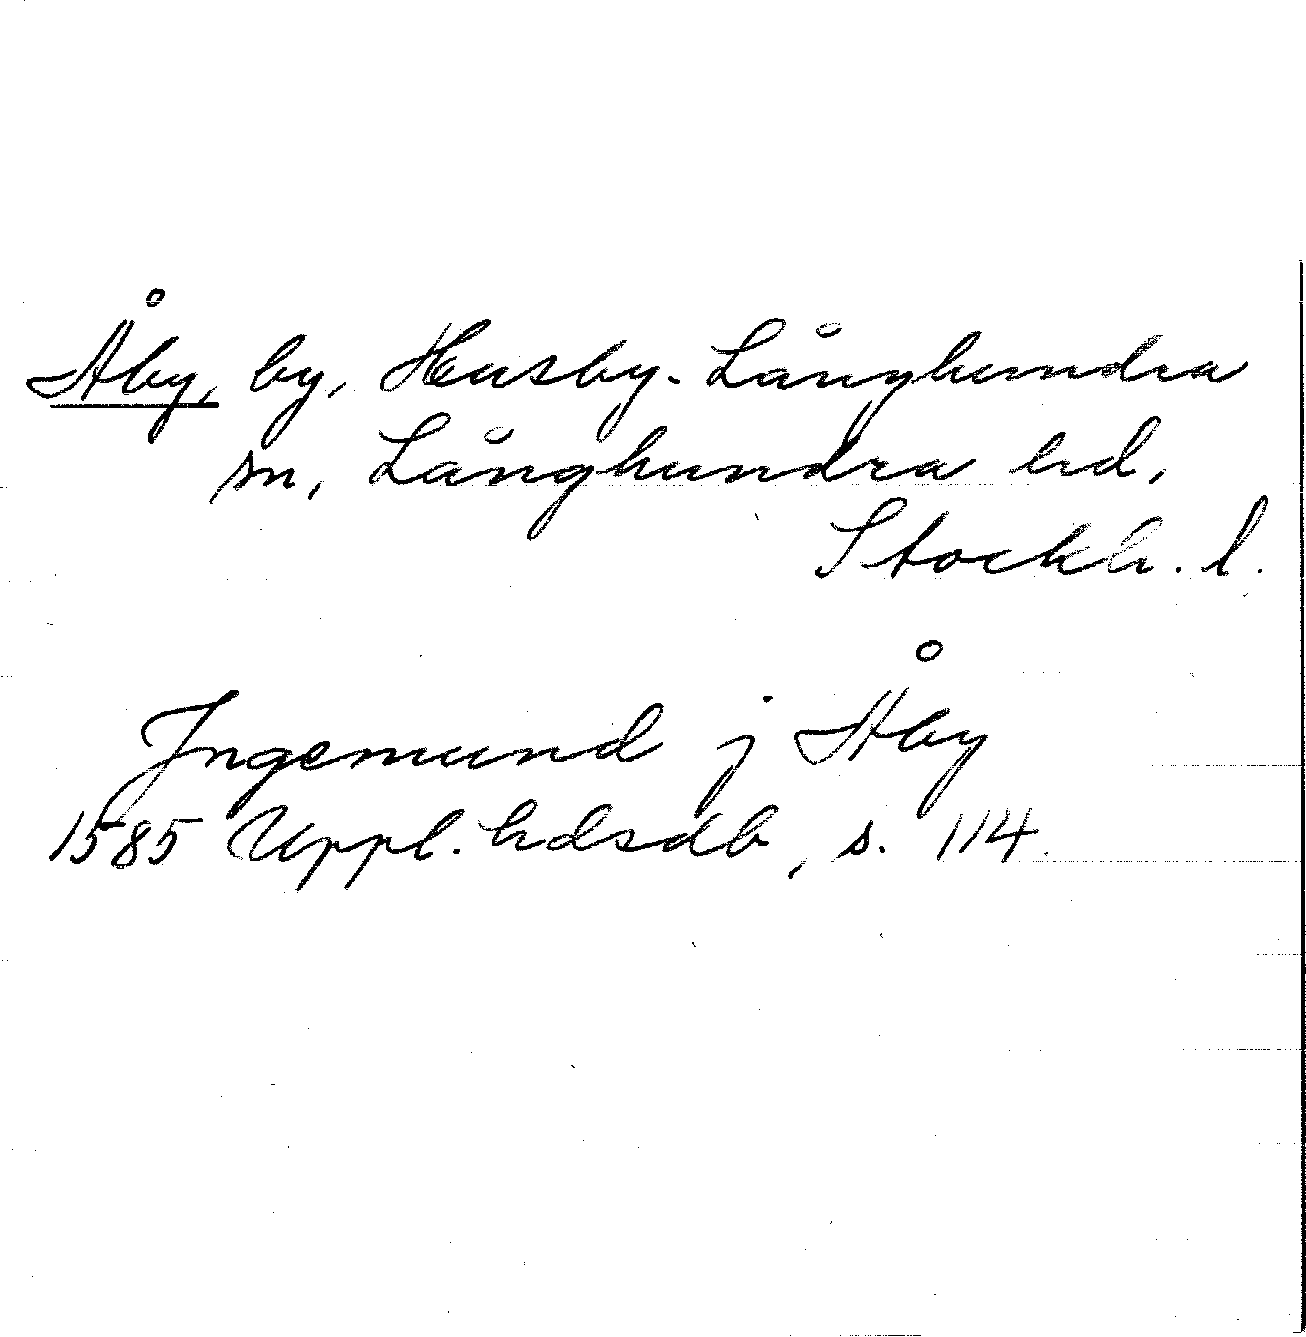 Åby, by, Husby-Långhundra
sn, Långhundra hd,
Stockh. l.
Ingemund j Åby
1585 Uppl. hdsdb, s. 114.